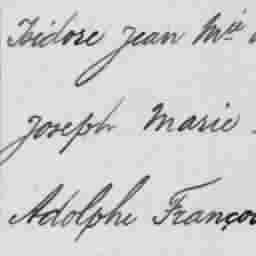 Isidore Jean Mie
Joseph Marie
Adolphe Franço